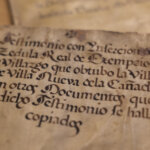 Testimonio con Insercion de
Zedula Real de Exempcion
Villazgo que obtubo la Villa
de Villa Nueva de la Cañada
con otros Documentos que
dicho Testimonio se hallan
copiados